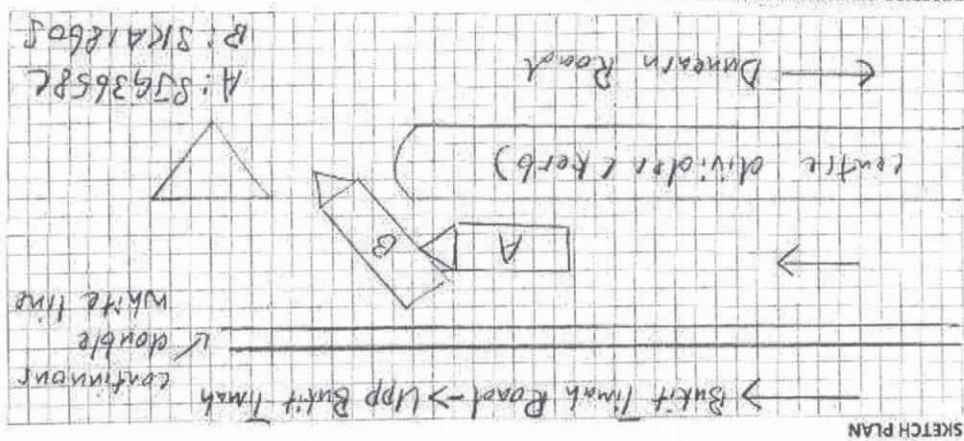 SKETCH PLAN
Bukit Timah Road → Upp Bukit Timah
continuous
double
white line
A
B
centre divider (kerb)
Dunearn Road
A: SJG3658C
B: SKA1860S